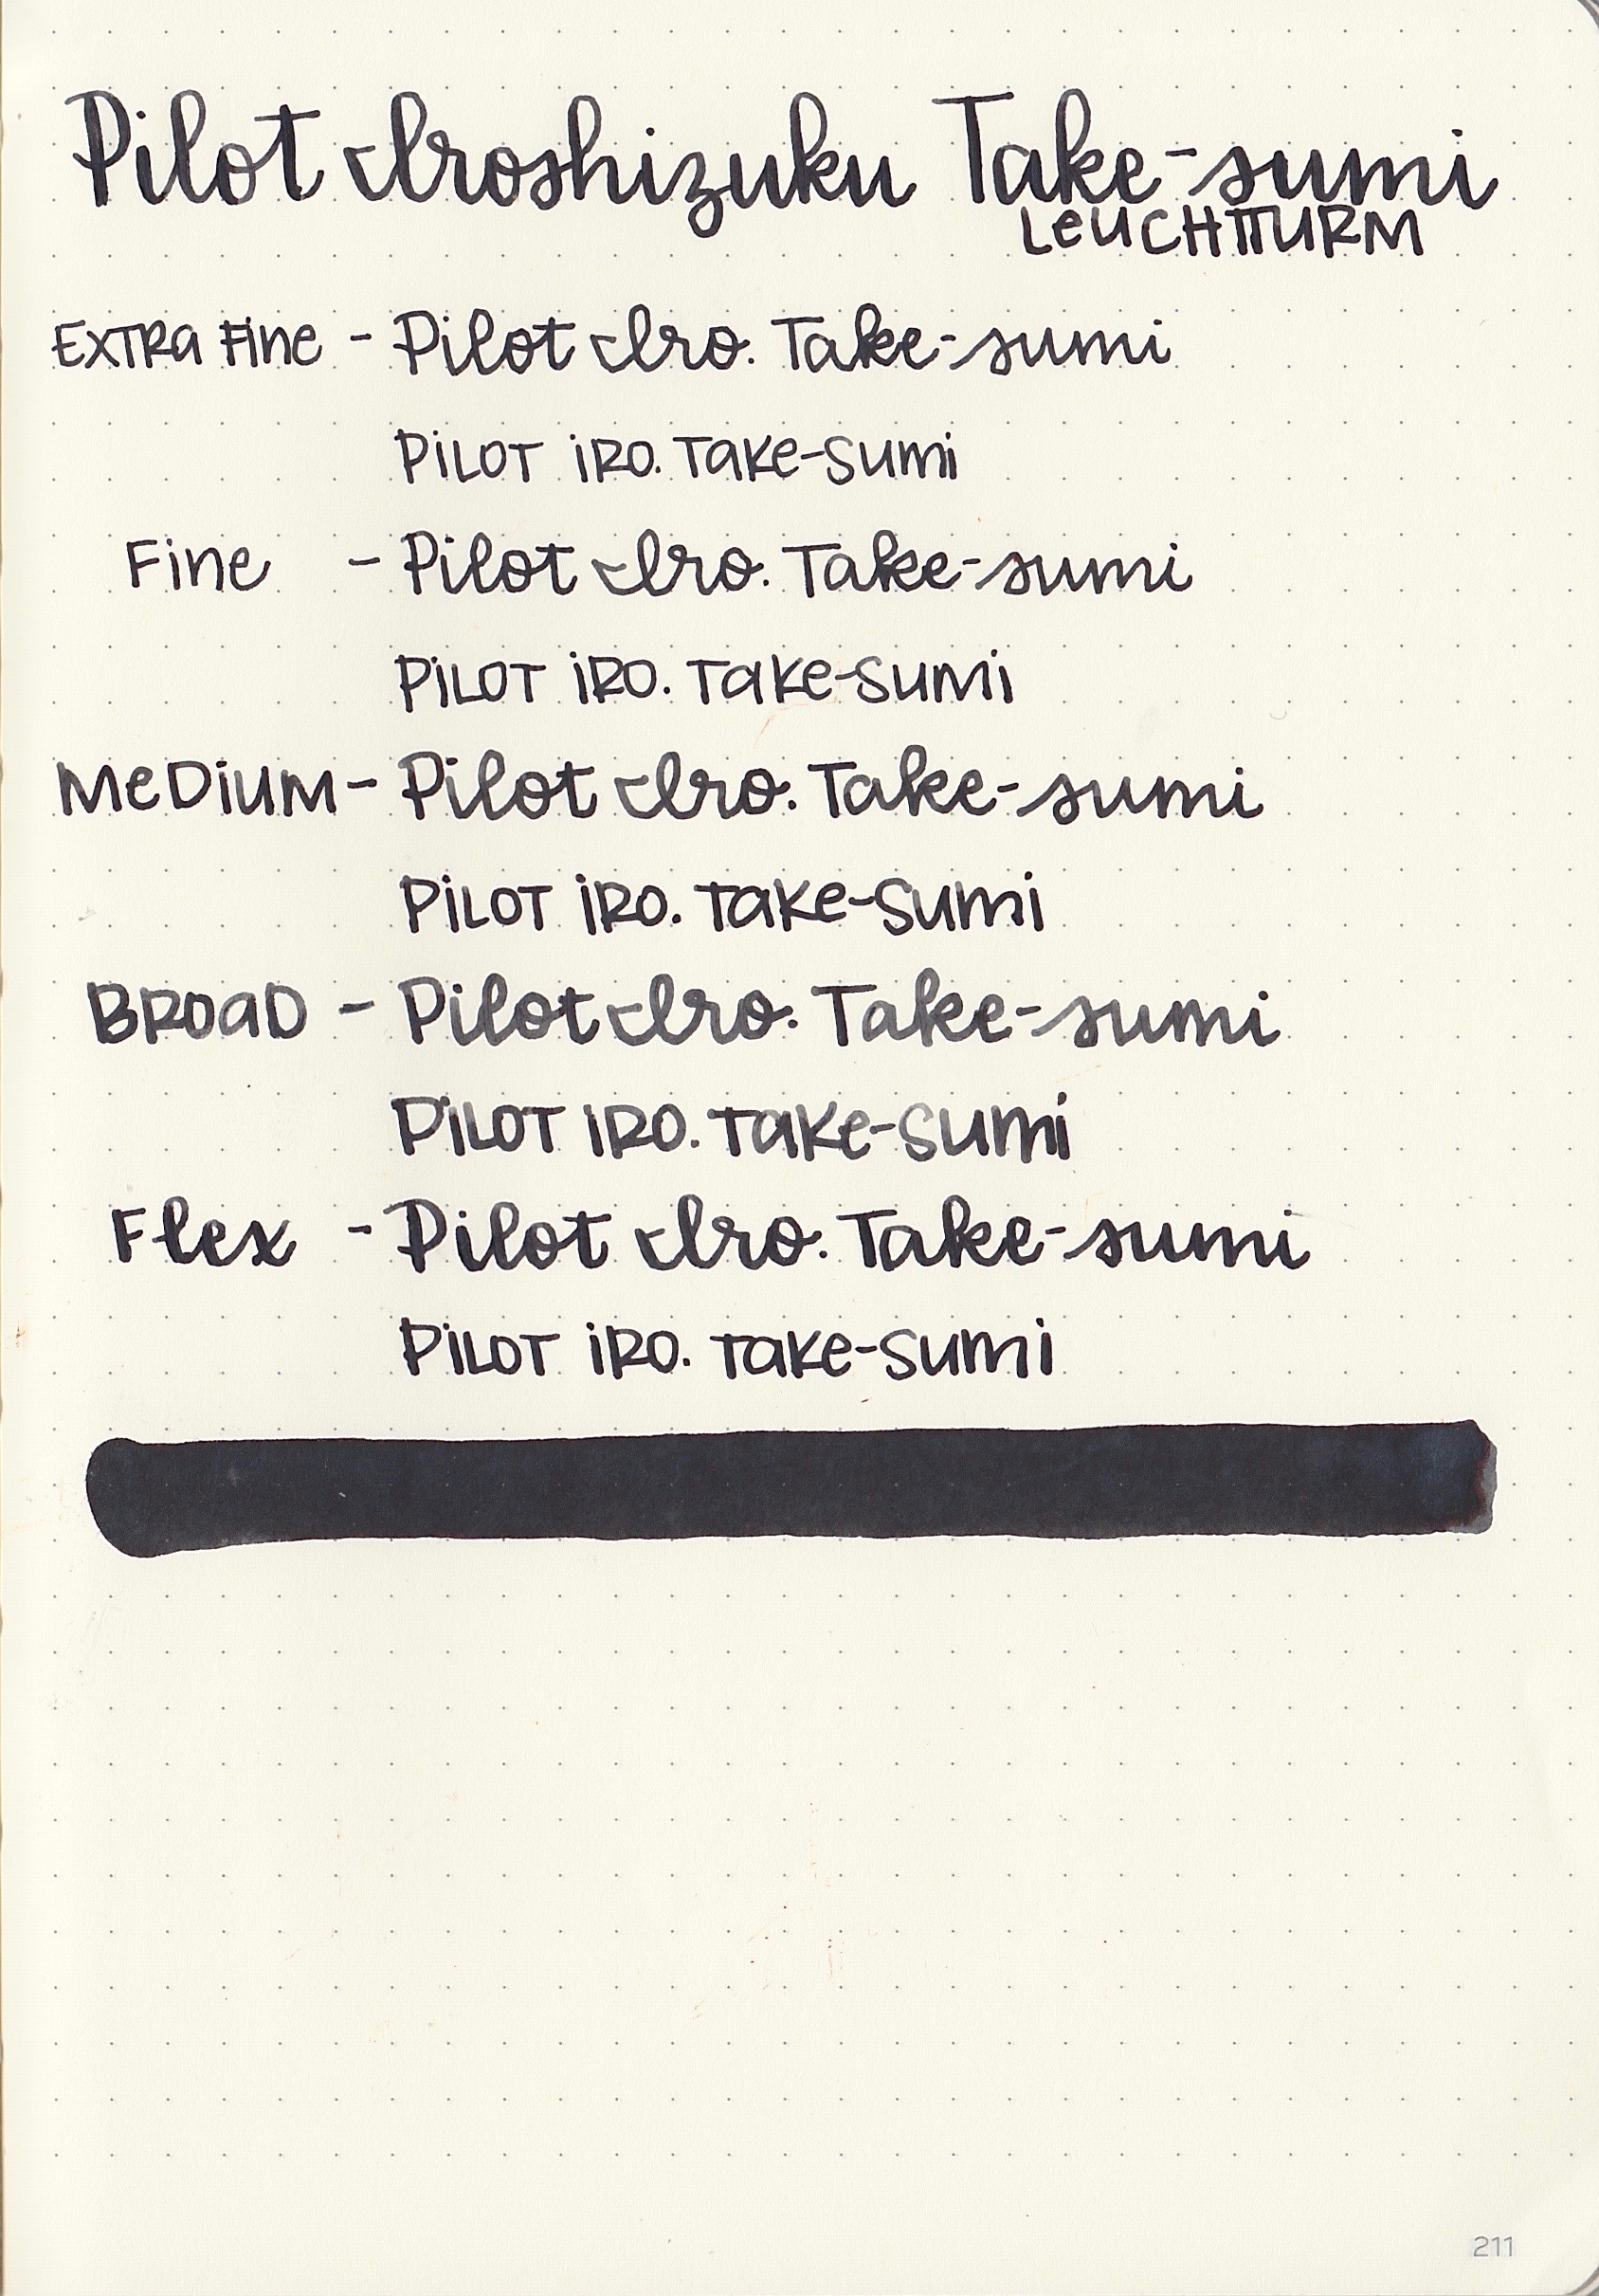 Pilot Iroshizuku Take-sumi
LEUCHTTURM
EXTRA FINE - Pilot Iro. Take-sumi
PILOT IRO. TAKE-SUMI
FINE - Pilot Iro. Take-sumi
PILOT IRO. TAKE-SUMI
MEDIUM - Pilot Iro. Take-sumi
PILOT IRO. TAKE-SUMI
BROAD - Pilot Iro. Take-sumi
PILOT IRO. TAKE-SUMI
Flex - Pilot Iro. Take-sumi
PILOT IRO. TAKE-SUMI
211